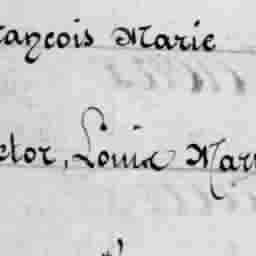 rançois Marie
ctor, Louis Mar